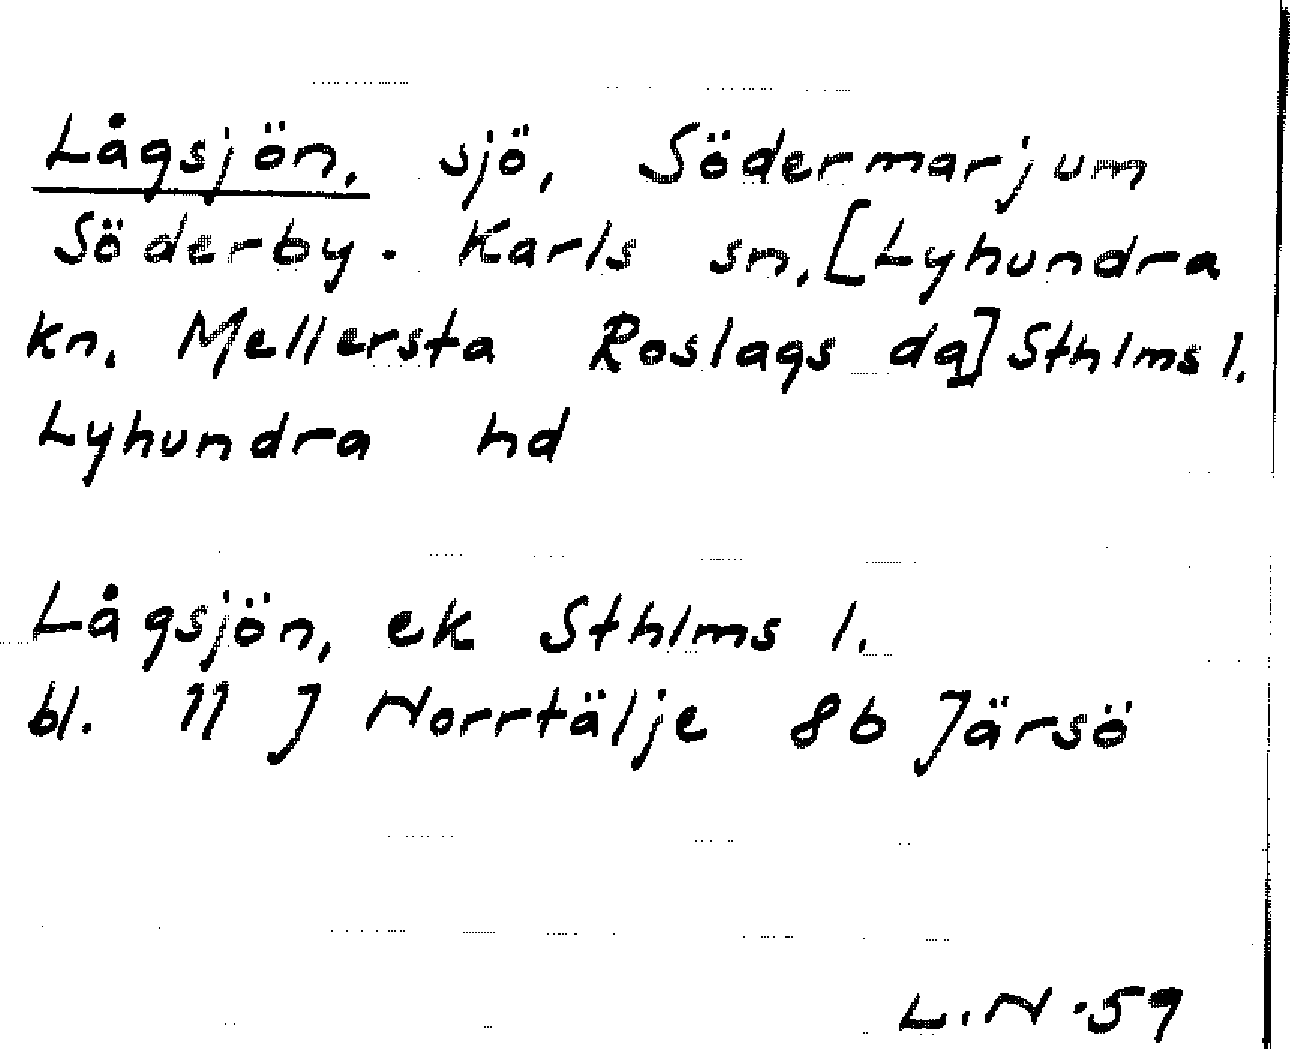 Lågsjön, sjö, Södermarjum
Söderby-Karls sn. [Lyhundra
kn. Mellersta Roslags dg] Sthlms l.
Lyhundra hd
Lågsjön, ek Sthlms l.
bl. 11 J Norrtälje 8b Järsö
L.N -59